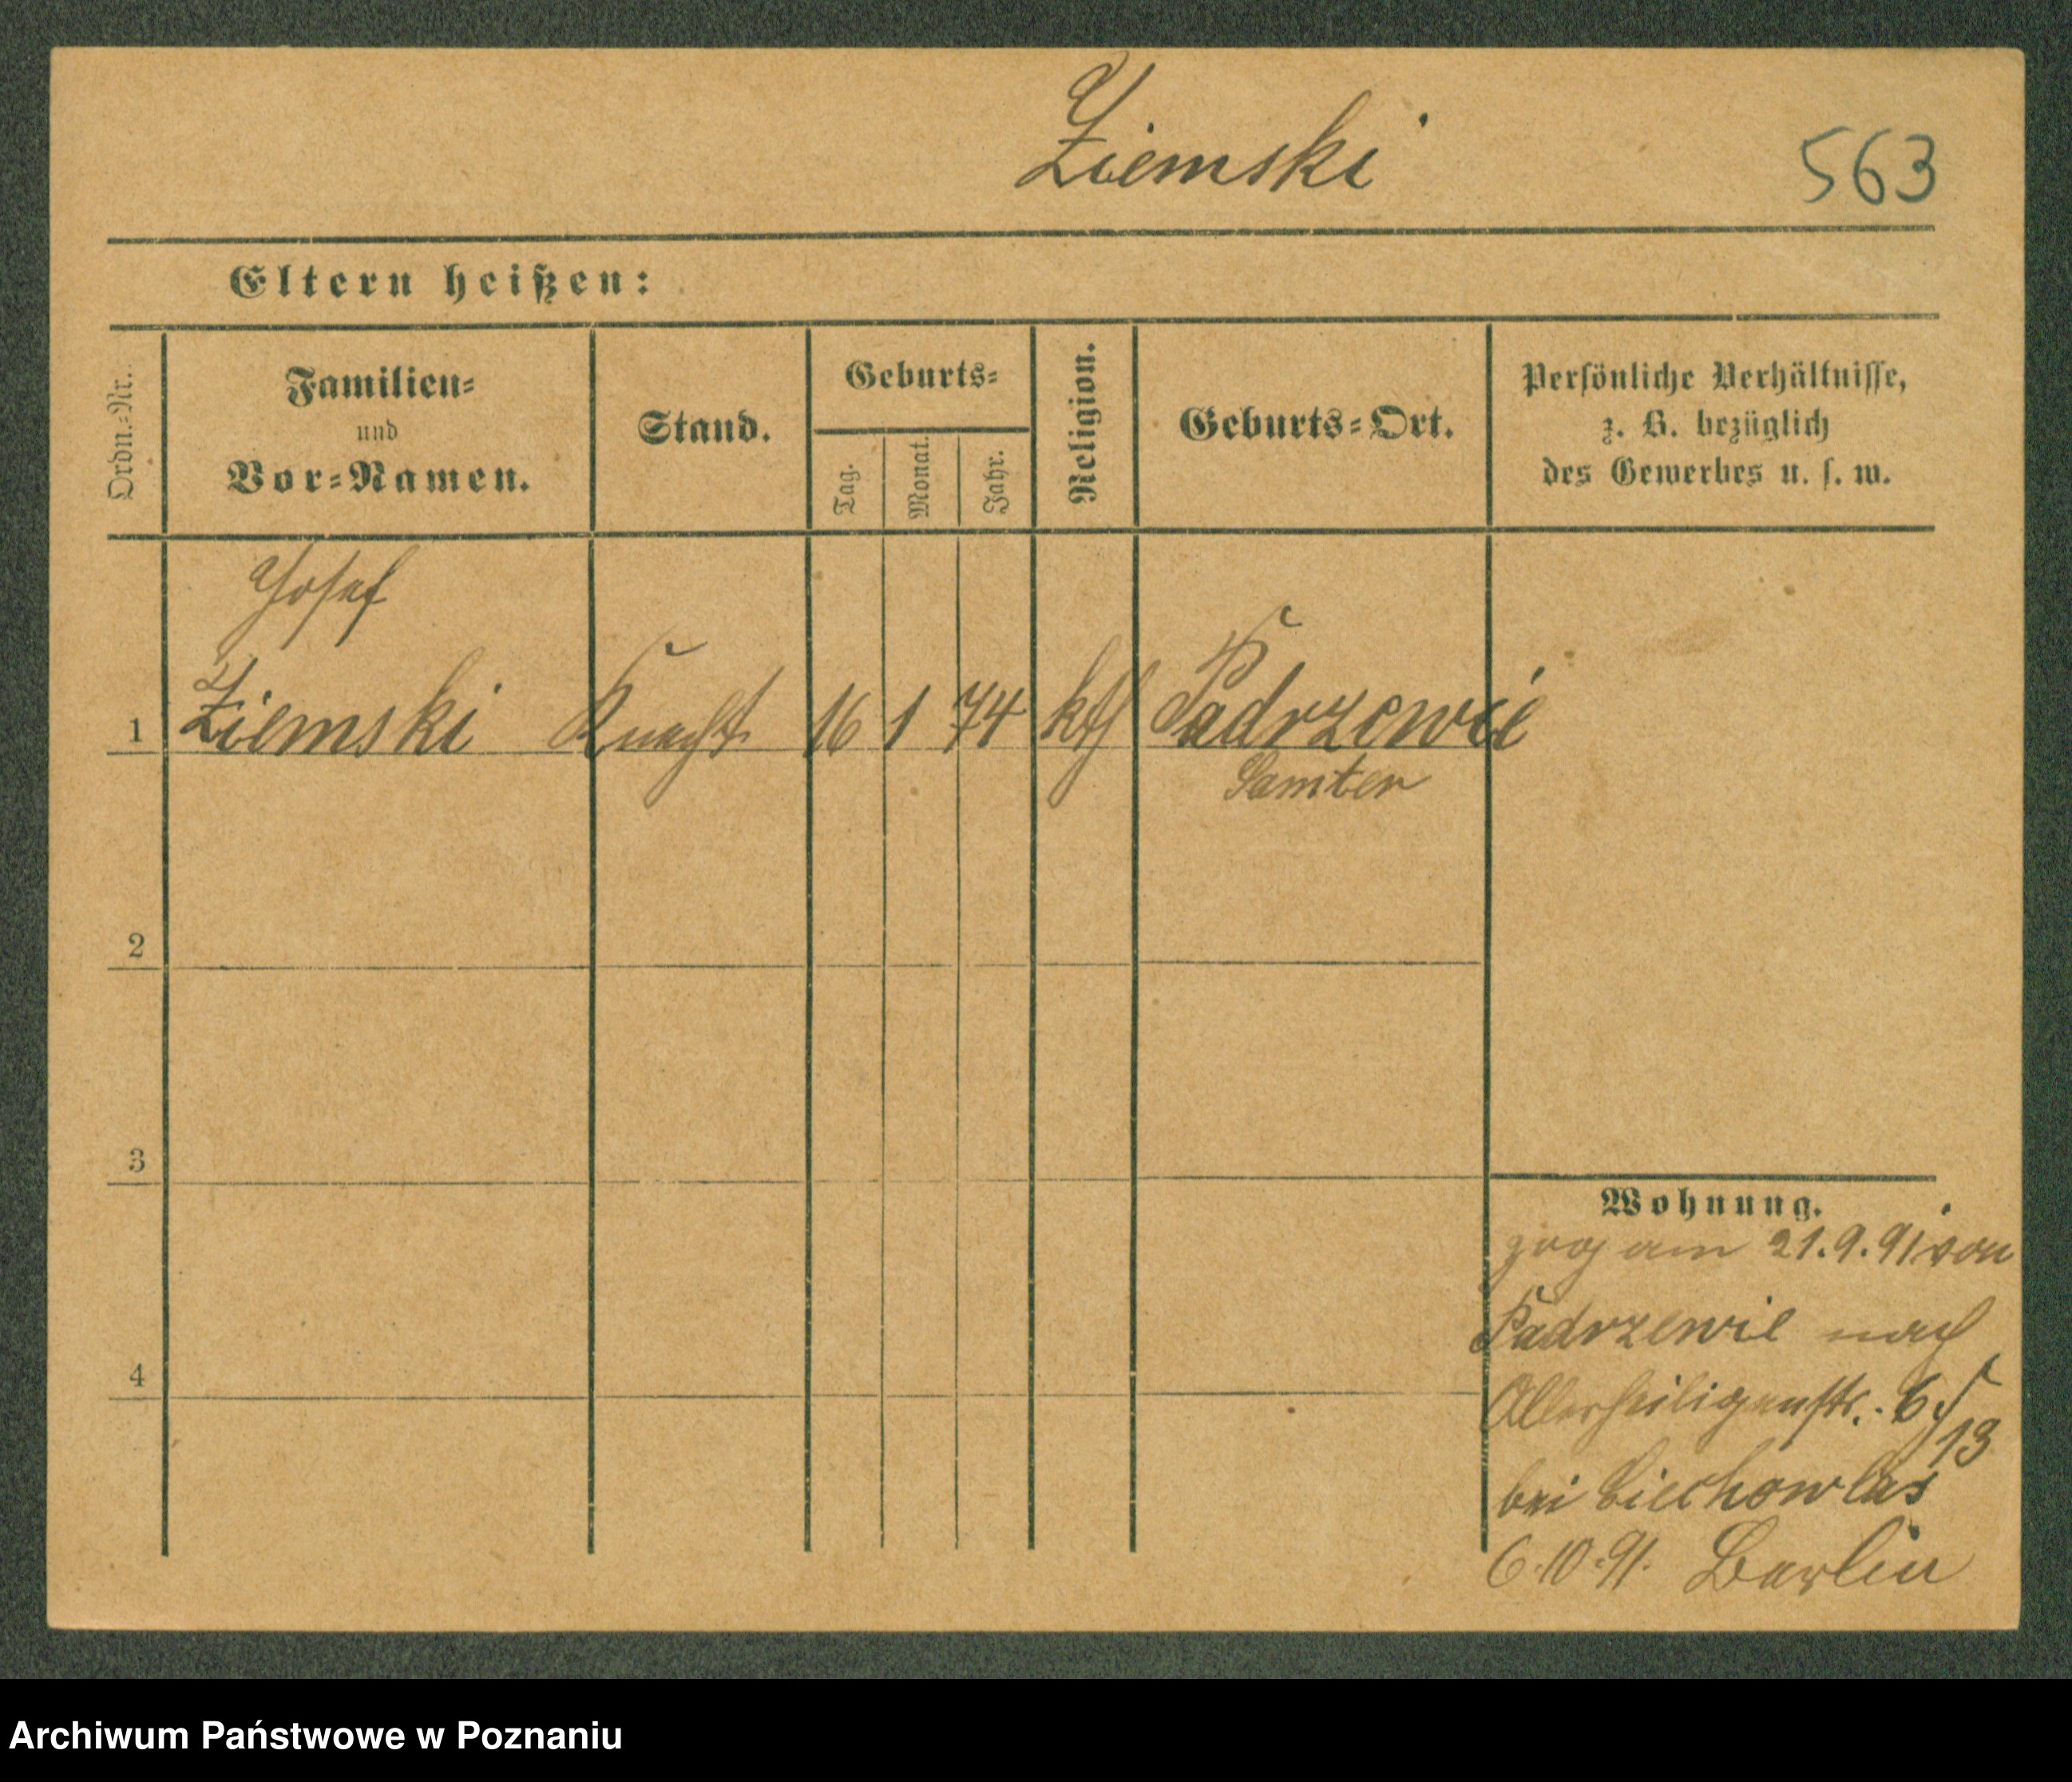 Ziemski
563
Eltern heißen:
Ordn.-Nr.
Familien-
und
Vor-Namen.
Stand.
Geburts-
Tag.
Monat.
Jahr.
Religion.
Geburts-Ort.
Persönliche Verhältnisse,
z. B. bezüglich
des Gewerbes u. s. w.
Josef
1 Ziemski Knecht 16 1 74 kth Padrzewie
Samter
2
3
4
Wohnung.
zog am 21.9.91 von
Padrzewie nach
Allerheiligenstr. 6
13
bei
6.10.91. Berlin
Archiwum Państwowe w Poznaniu